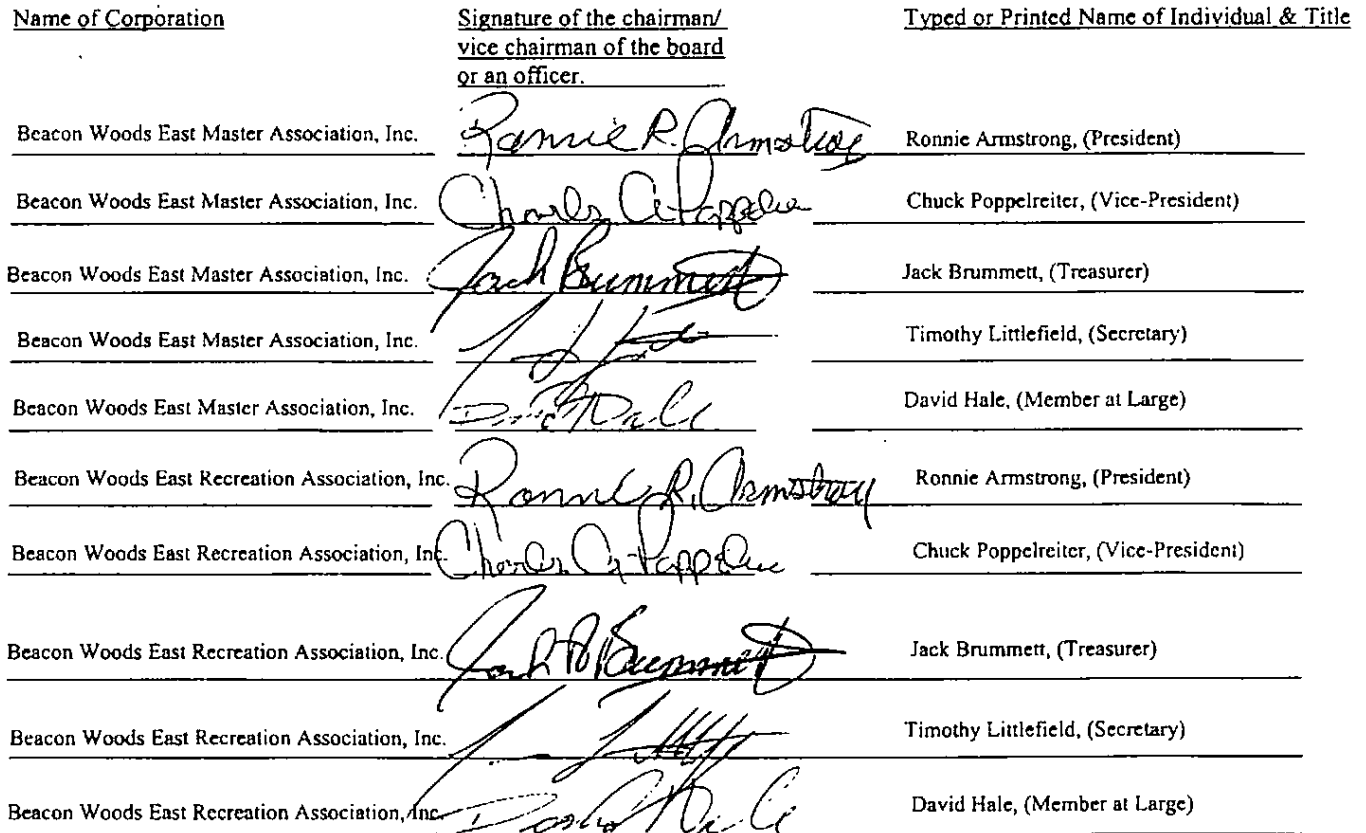 Name of Corporation Signature of the chairman/ Typed or Printed Name of Individual & Title
vice chairman of the board
or an officer.
Beacon Woods East Master Association, Inc. Ronnie R. Armstrong Ronnie Armstrong, (President)
Beacon Woods East Master Association, Inc. Charles A. Chuck Poppelreiter, (Vice-President)
Beacon Woods East Master Association, Inc. Jack Brummett Jack Brummett, (Treasurer)
Beacon Woods East Master Association, Inc. Timothy Littlefield, (Secretary)
Beacon Woods East Master Association, Inc. David Hale, (Member at Large)
Beacon Woods East Recreation Association, Inc. Ronnie R. Armstrong Ronnie Armstrong, (President)
Beacon Woods East Recreation Association, Inc. Charles A. Chuck Poppelreiter, (Vice-President)
Beacon Woods East Recreation Association, Inc. Jack Brummett Jack Brummett, (Treasurer)
Beacon Woods East Recreation Association, Inc. Timothy Littlefield, (Secretary)
Beacon Woods East Recreation Association, Inc. David Hale David Hale, (Member at Large)